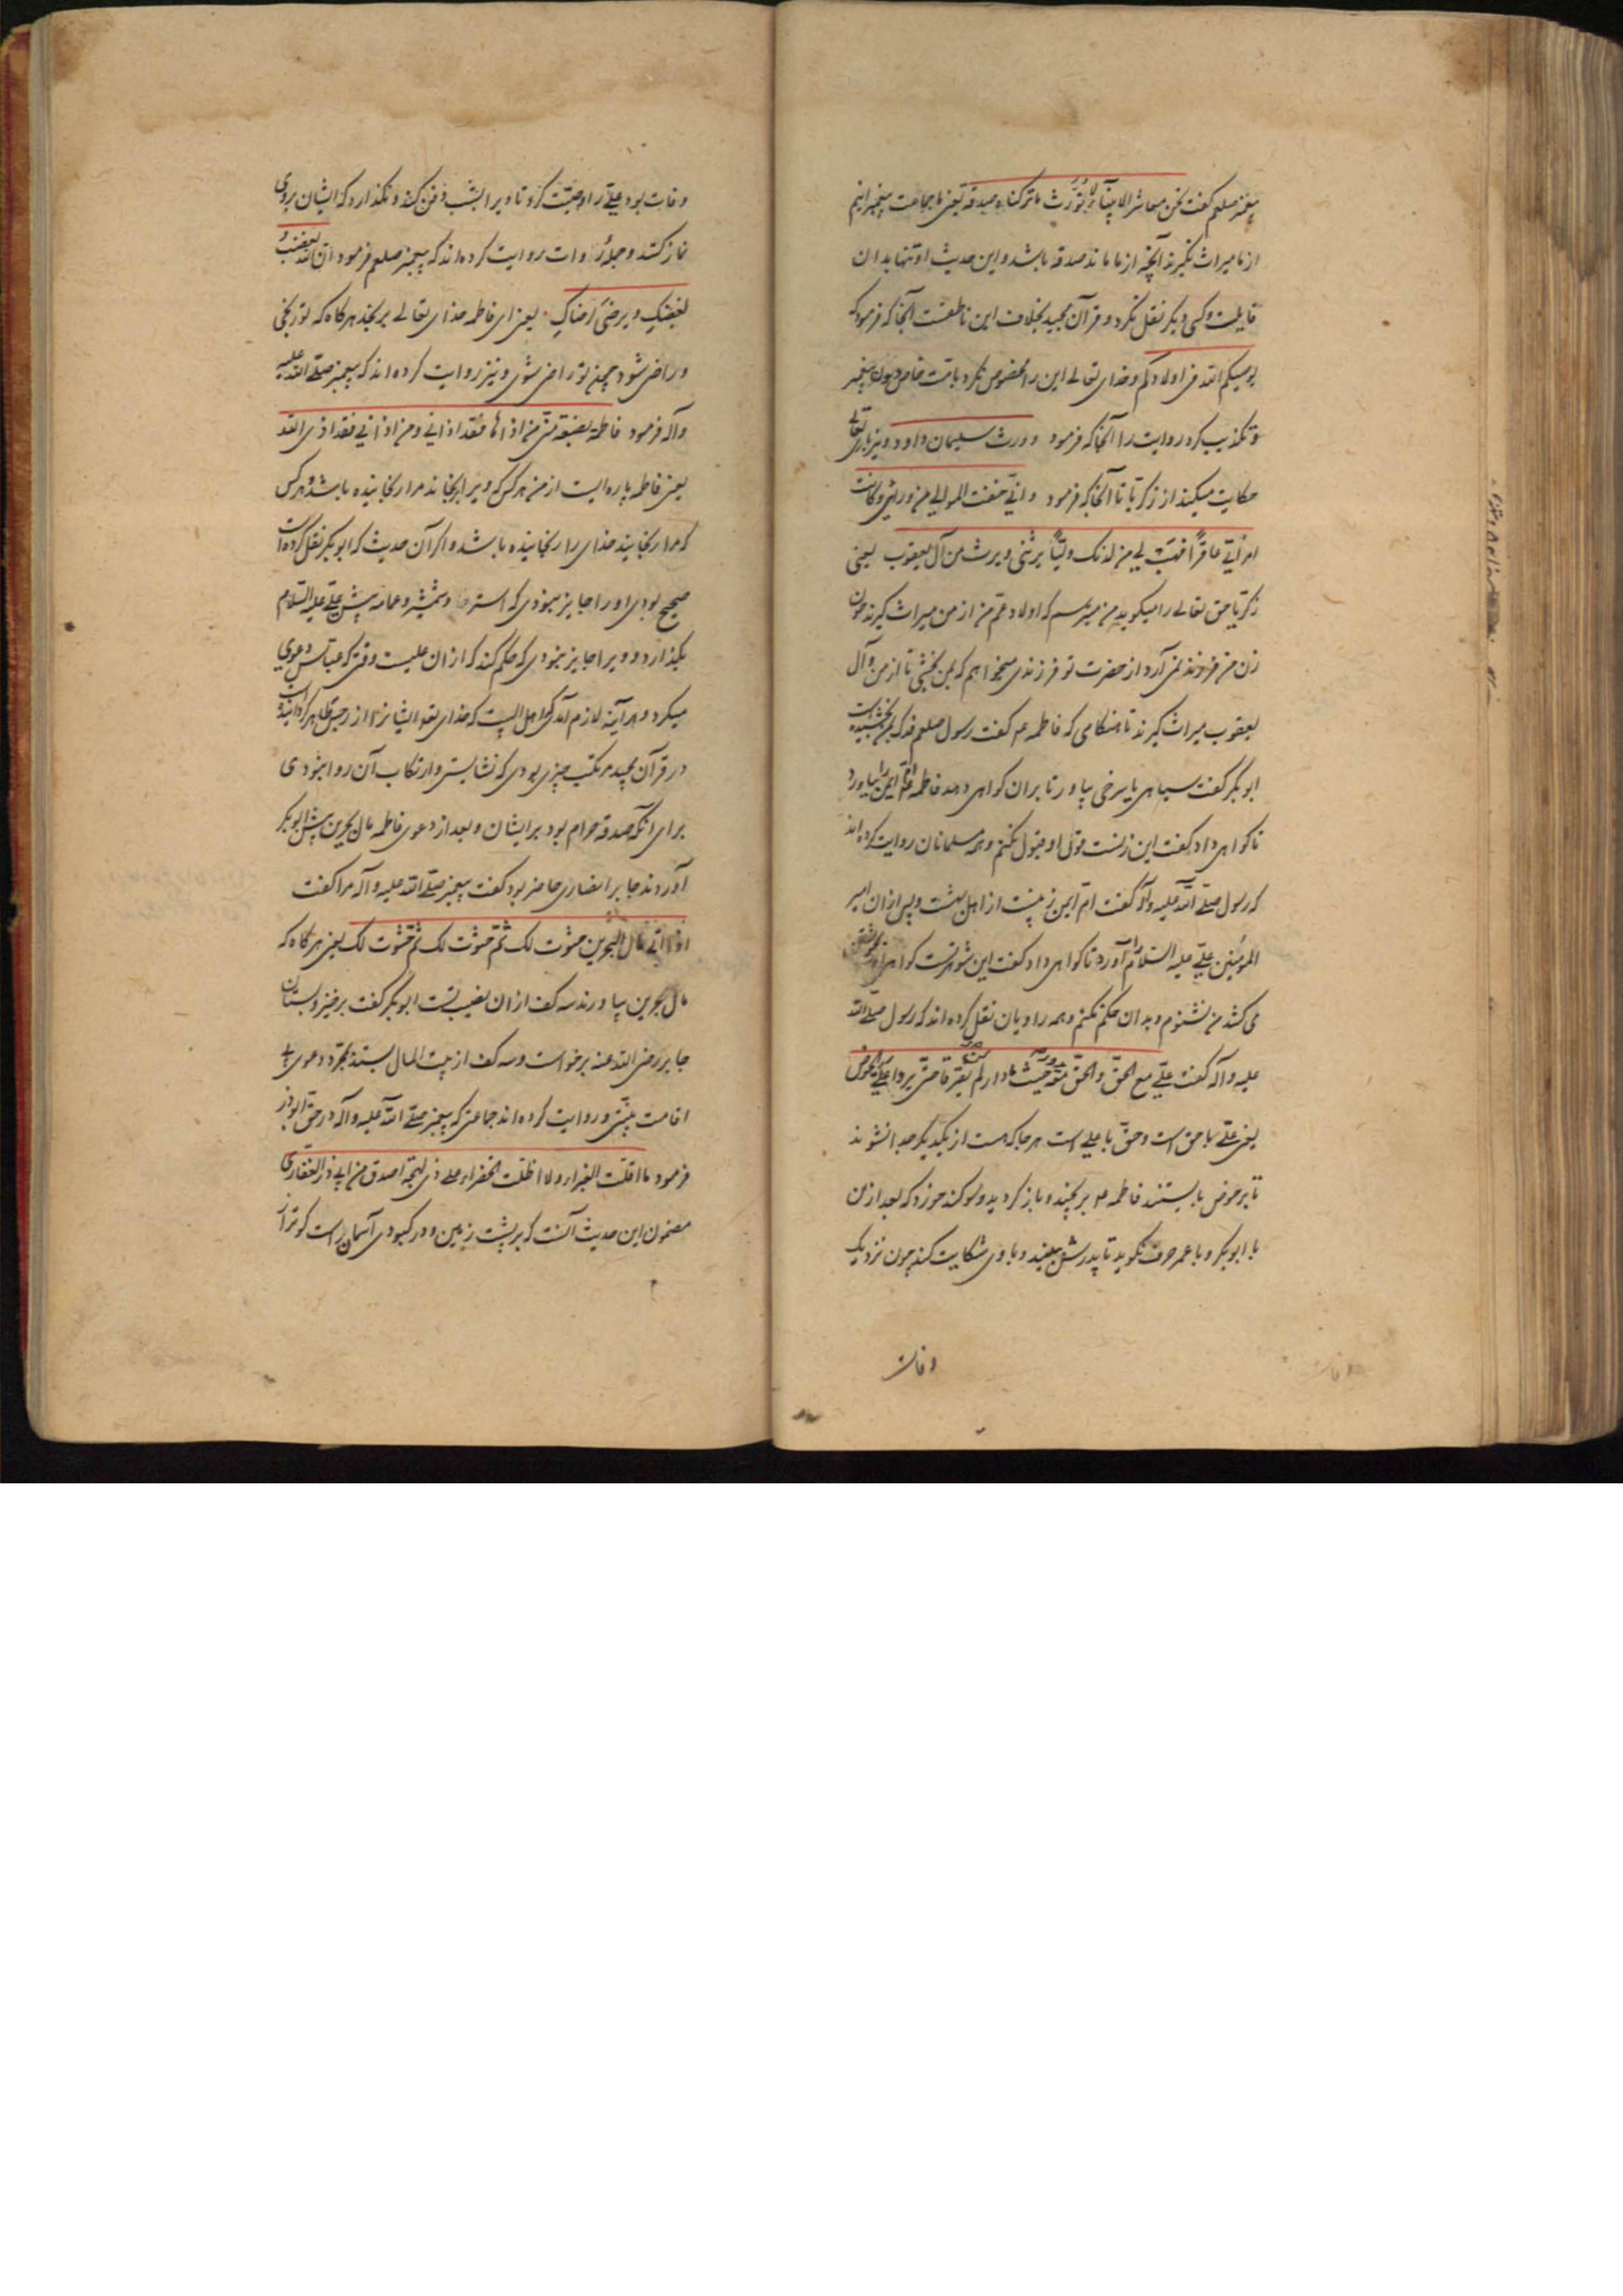 پیغمبر صلعم گفت نحن معاشر الانبیآء لا نُورَث ما ترکناه صدقه یعنی ما جماعت پیغمبرانیم
از ما میراث نگیرند آنچه از ما ماند صدقه باشد و این حدیث او تنها بدان
قایلست و کسی دیگر نقل نکرد و قرآن مجید بخلاف این ناطقست آنجا که فرمود که
یوصیکم الله فی اولادکم و خدای تعالی این را مخصوص نکرد بامّت خاص دون پیغمبر
و تکذیب کرد روایت را آنجا که فرمود و ورث سلیمان داود و نیز باری تعالی
حکایت میکند از زکریّا تا آنجا که فرمود و انّی خفت الموالی من ورائی و کانت
امرأتی عاقرًا فهب لی من لدنک ولیًّا یرثنی و یرث من آل یعقوب یعنی
زکریّا حق تعالی را میگوید من میترسم که اولاد عمّ من از من میراث گیرند چون
زن من فرزند نمی آرد از حضرت تو فرزندی میخواهم که بمن بخشی تا از من و آل
یعقوب میراث گیرند تا هنگامی که فاطمه ع م گفت رسول صلعم فدک بمن بخشیده است
ابوبکر گفت سیاهی یا سرخی بیاور تا بران گواهی دهد فاطمه امّ ایمن را بیاورد
تا گواهی داد گفت این زنست قول او قبول نکنم و همه مسلمانان روایت کرده اند
که رسول صلّی الله علیه و آله گفت امّ ایمن زنیست از اهل بهشت و پس ازان امیر
المؤمنین علیّ علیه السّلام را آورد تا گواهی داد گفت این شوهرتست گواهی او
می کشد من نشنوم و بدان حکم نکنم و همه راویان نقل کرده اند که رسول صلّی الله
علیه و آله گفت علیّ مع الحقّ و الحقّ معه یدور حیث ما دار لم یفترقا حتّی یردا علیّ الحوض
یعنی علیّ با حق است و حقّ با علی است هر جا که هست از یکدیگر جدا نشوند
تا بر حوض بایستند فاطمه ع م برنجید و بازگردید و سوگند خورد که بعد ازین
با ابوبکر و با عمر حرف نگوید تا پدرش ببیند و با وی شکایت کند چون نزدیک
وفات
وفات بود علیّ را وصیّت کرد تا ویرا بشب دفن کند و نگذارد که ایشان بروی
نماز کنند و جملهٔ روات روایت کرده اند که پیغمبر صلعم فرمود انّ الله یغضب
لغضبک و یرضی لرضاک یعنی ای فاطمه خدای تعالی برنجد هر گاه که تو رنجی
و راضی شود چون تو راضی شوی و نیز روایت کرده اند که پیغمبر صلّی الله علیه
و آله فرمود فاطمة بضعة منّی من اذاها فقد اذانی و من اذانی فقد اذی الله
یعنی فاطمه پاره ایست از من هر کس که ویرا برنجاند مرا رنجانیده باشد و هر کس
که مرا رنجانید خدای را رنجانیده باشد و اگر آن حدیث که ابوبکر نقل کرده است
صحیح بودی او را جایز نبودی که استر و شمشیر و عمامه پیش علی علیه السلام
بگذارد و ویرا جایز نبودی که حکم کند که ازان علیست وقتی که عبّاس دعوی
میکرد و هر آینه لازم آمدی که اهل البیت که خدای تع ایشانرا از رجس طاهر گردانیده است
در قرآن مجید مرتکب چیزی بودی که نشایستی و ارتکاب آن روا نبودی
برای انکه صدقه حرام بود بر ایشان و بعد از دعوی فاطمه مال بحرین پیش ابوبکر
آوردند جابر انصاری حاضر بود گفت پیغمبر صلّی الله علیه و آله مرا گفت
اذا اتی مال البحرین حثوت لک ثمّ حثوت لک ثمّ حثوت لک یعنی هر گاه که
مال بحرین بیاورند سه کف ازان نصیب تست ابوبکر گفت برخیز و بستان
جابر رضی الله عنه برخواست و سه کف از بیت المال بستد بمجرّد دعوی بی
اقامت بیّنتی و روایت کرده اند جماعتی که پیغمبر صلّی الله علیه و آله در حق ابوذر
فرمود ما اقلّت الغبراء و لا اظلت الخضراء علی ذی لهجة اصدق من ابی ذر الغفاری
مضمون این حدیث آنست که بر پشت زمین و در کبودی آسمان راست گوتر از